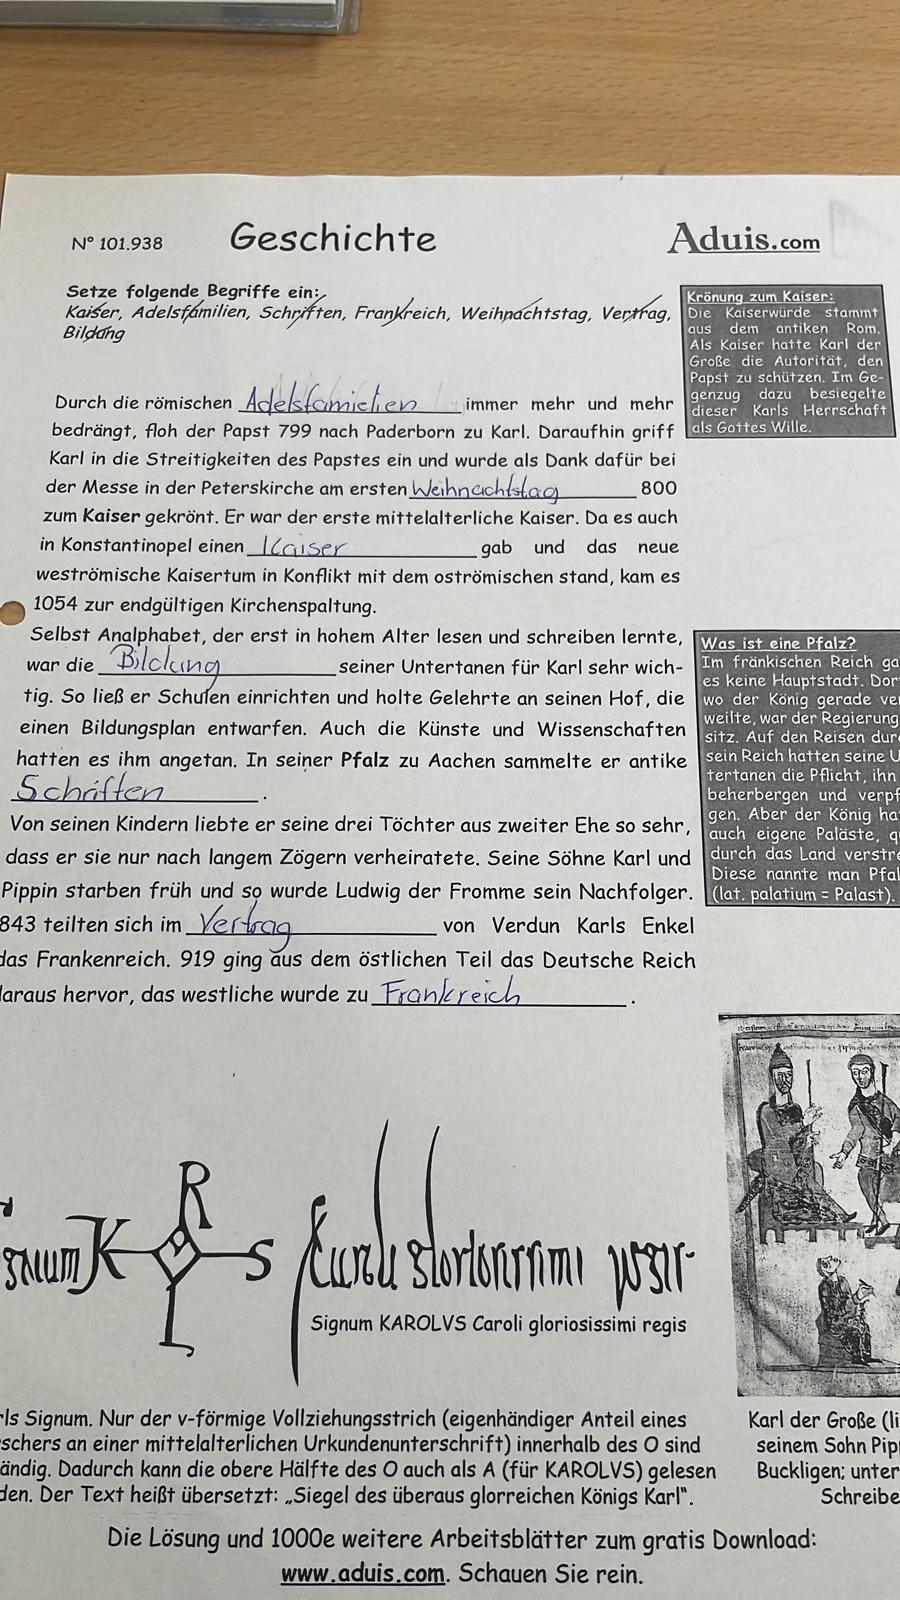 N° 101.938 Geschichte Aduis.com
Setze folgende Begriffe ein:
Kaiser, Adelsfamilien, Schriften, Frankreich, Weihnachtstag, Vertrag,
Bildung
Krönung zum Kaiser:
Die Kaiserwürde stammt
aus dem antiken Rom.
Als Kaiser hatte Karl der
Große die Autorität, den
Papst zu schützen. Im Ge-
genzug dazu besiegelte
dieser Karls Herrschaft
als Gottes Wille.
Durch die römischen Adelsfamielien immer mehr und mehr
bedrängt, floh der Papst 799 nach Paderborn zu Karl. Daraufhin griff
Karl in die Streitigkeiten des Papstes ein und wurde als Dank dafür bei
der Messe in der Peterskirche am ersten Weihnachtstag 800
zum Kaiser gekrönt. Er war der erste mittelalterliche Kaiser. Da es auch
in Konstantinopel einen Kaiser gab und das neue
weströmische Kaisertum in Konflikt mit dem oströmischen stand, kam es
1054 zur endgültigen Kirchenspaltung.
Selbst Analphabet, der erst in hohem Alter lesen und schreiben lernte,
war die Bildung seiner Untertanen für Karl sehr wich-
tig. So ließ er Schulen einrichten und holte Gelehrte an seinen Hof, die
einen Bildungsplan entwarfen. Auch die Künste und Wissenschaften
hatten es ihm angetan. In seiner Pfalz zu Aachen sammelte er antike
Schriften .
Von seinen Kindern liebte er seine drei Töchter aus zweiter Ehe so sehr,
dass er sie nur nach langem Zögern verheiratete. Seine Söhne Karl und
Pippin starben früh und so wurde Ludwig der Fromme sein Nachfolger.
843 teilten sich im Vertrag von Verdun Karls Enkel
das Frankenreich. 919 ging aus dem östlichen Teil das Deutsche Reich
daraus hervor, das westliche wurde zu Frankreich .
Was ist eine Pfalz?
Im fränkischen Reich ga
es keine Hauptstadt. Dor
wo der König gerade ve
weilte, war der Regierung
sitz. Auf den Reisen dur
sein Reich hatten seine U
tertanen die Pflicht, ihn
beherbergen und verpf
gen. Aber der König ha
auch eigene Paläste, 
durch das Land verstre
Diese nannte man Pfal
(lat. palatium = Palast).
K R S L
Signum KAROLVS Caroli gloriosissimi regis
rls Signum. Nur der v-förmige Vollziehungsstrich (eigenhändiger Anteil eines
schers an einer mittelalterlichen Urkundenunterschrift) innerhalb des O sind
ändig. Dadurch kann die obere Hälfte des O auch als A (für KAROLVS) gelesen
den. Der Text heißt übersetzt: „Siegel des überaus glorreichen Königs Karl“.
Karl der Große (li
seinem Sohn Pip
Buckligen; unter
Schreibe
Die Lösung und 1000e weitere Arbeitsblätter zum gratis Download:
www.aduis.com. Schauen Sie rein.